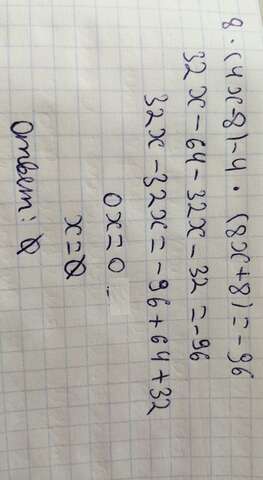 8 · (4x-8)-4 · (8x+8)=-96
32x-64-32x-32=-96
32x-32x=-96+64+32
0x=0
x=∅
Ответ: ∅